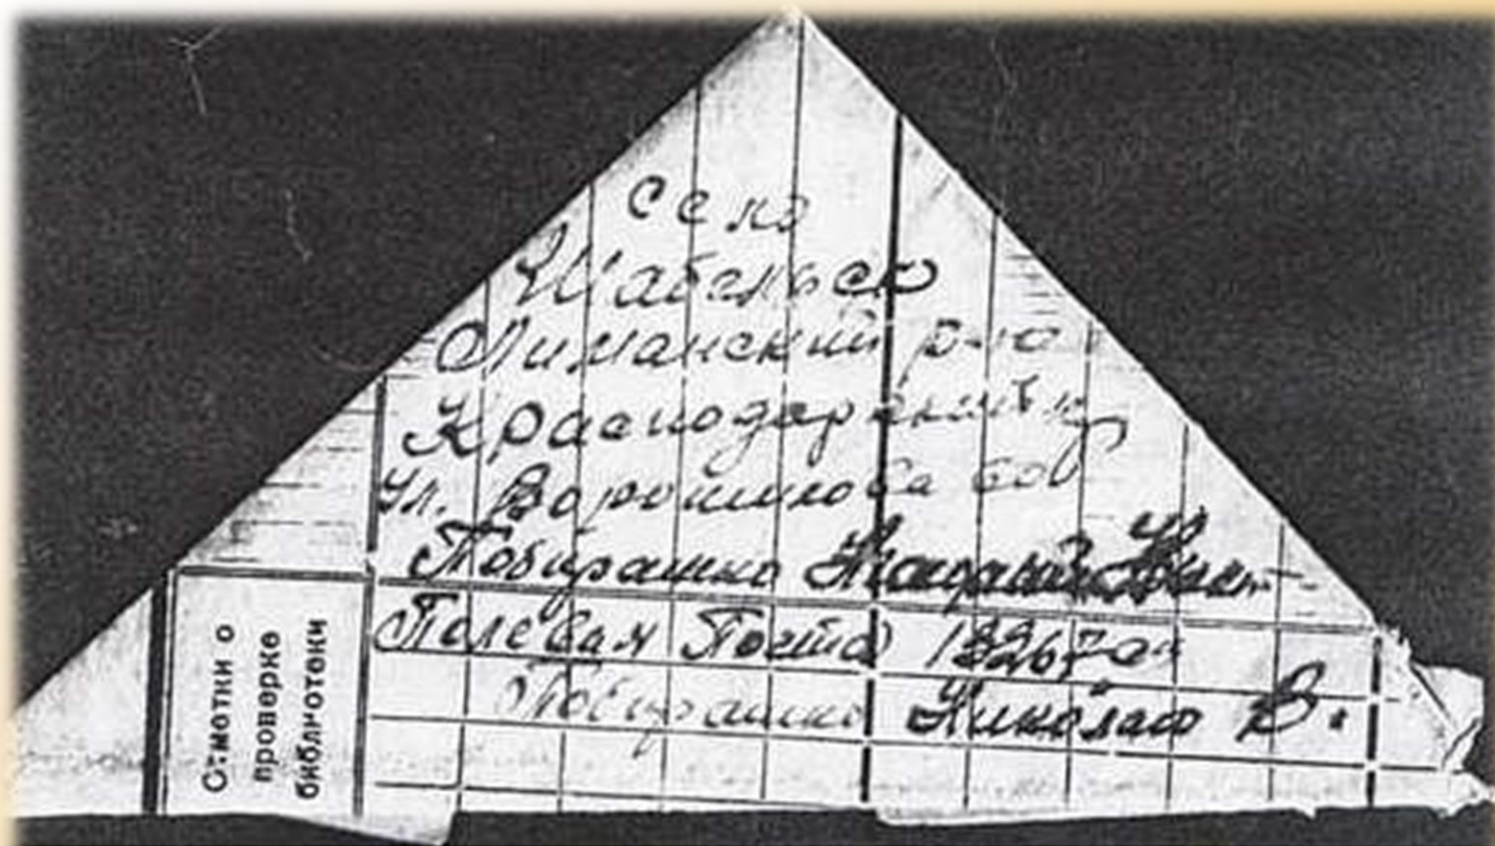 село
Шабельск
Лиманский р-о
Краснодарский к
ул. Ворошилова
Побирашко
Полевая Почта
Побирашко Николаю В.
Отметки о
проверке
библиотеки